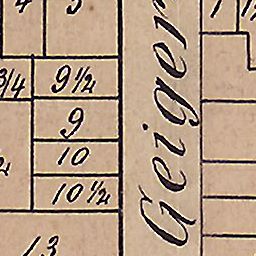 3/4
9 1/2
9
10
10 1/2
13
Geiger